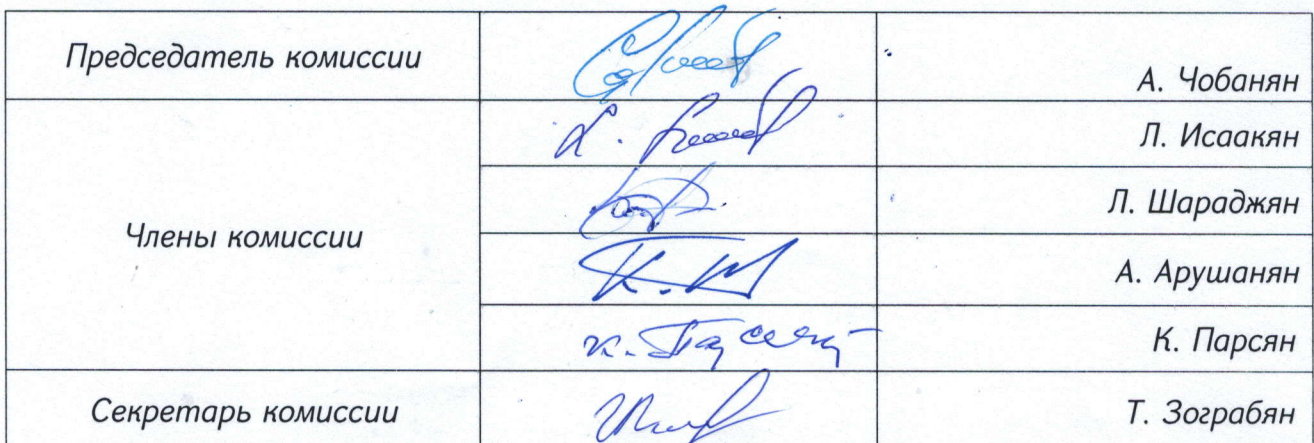 Председатель комиссии
А. Чобанян
Л. Исаакян
Члены комиссии
Л. Шараджян
А. Арушанян
К. Парсян
Секретарь комиссии
Т. Зограбян